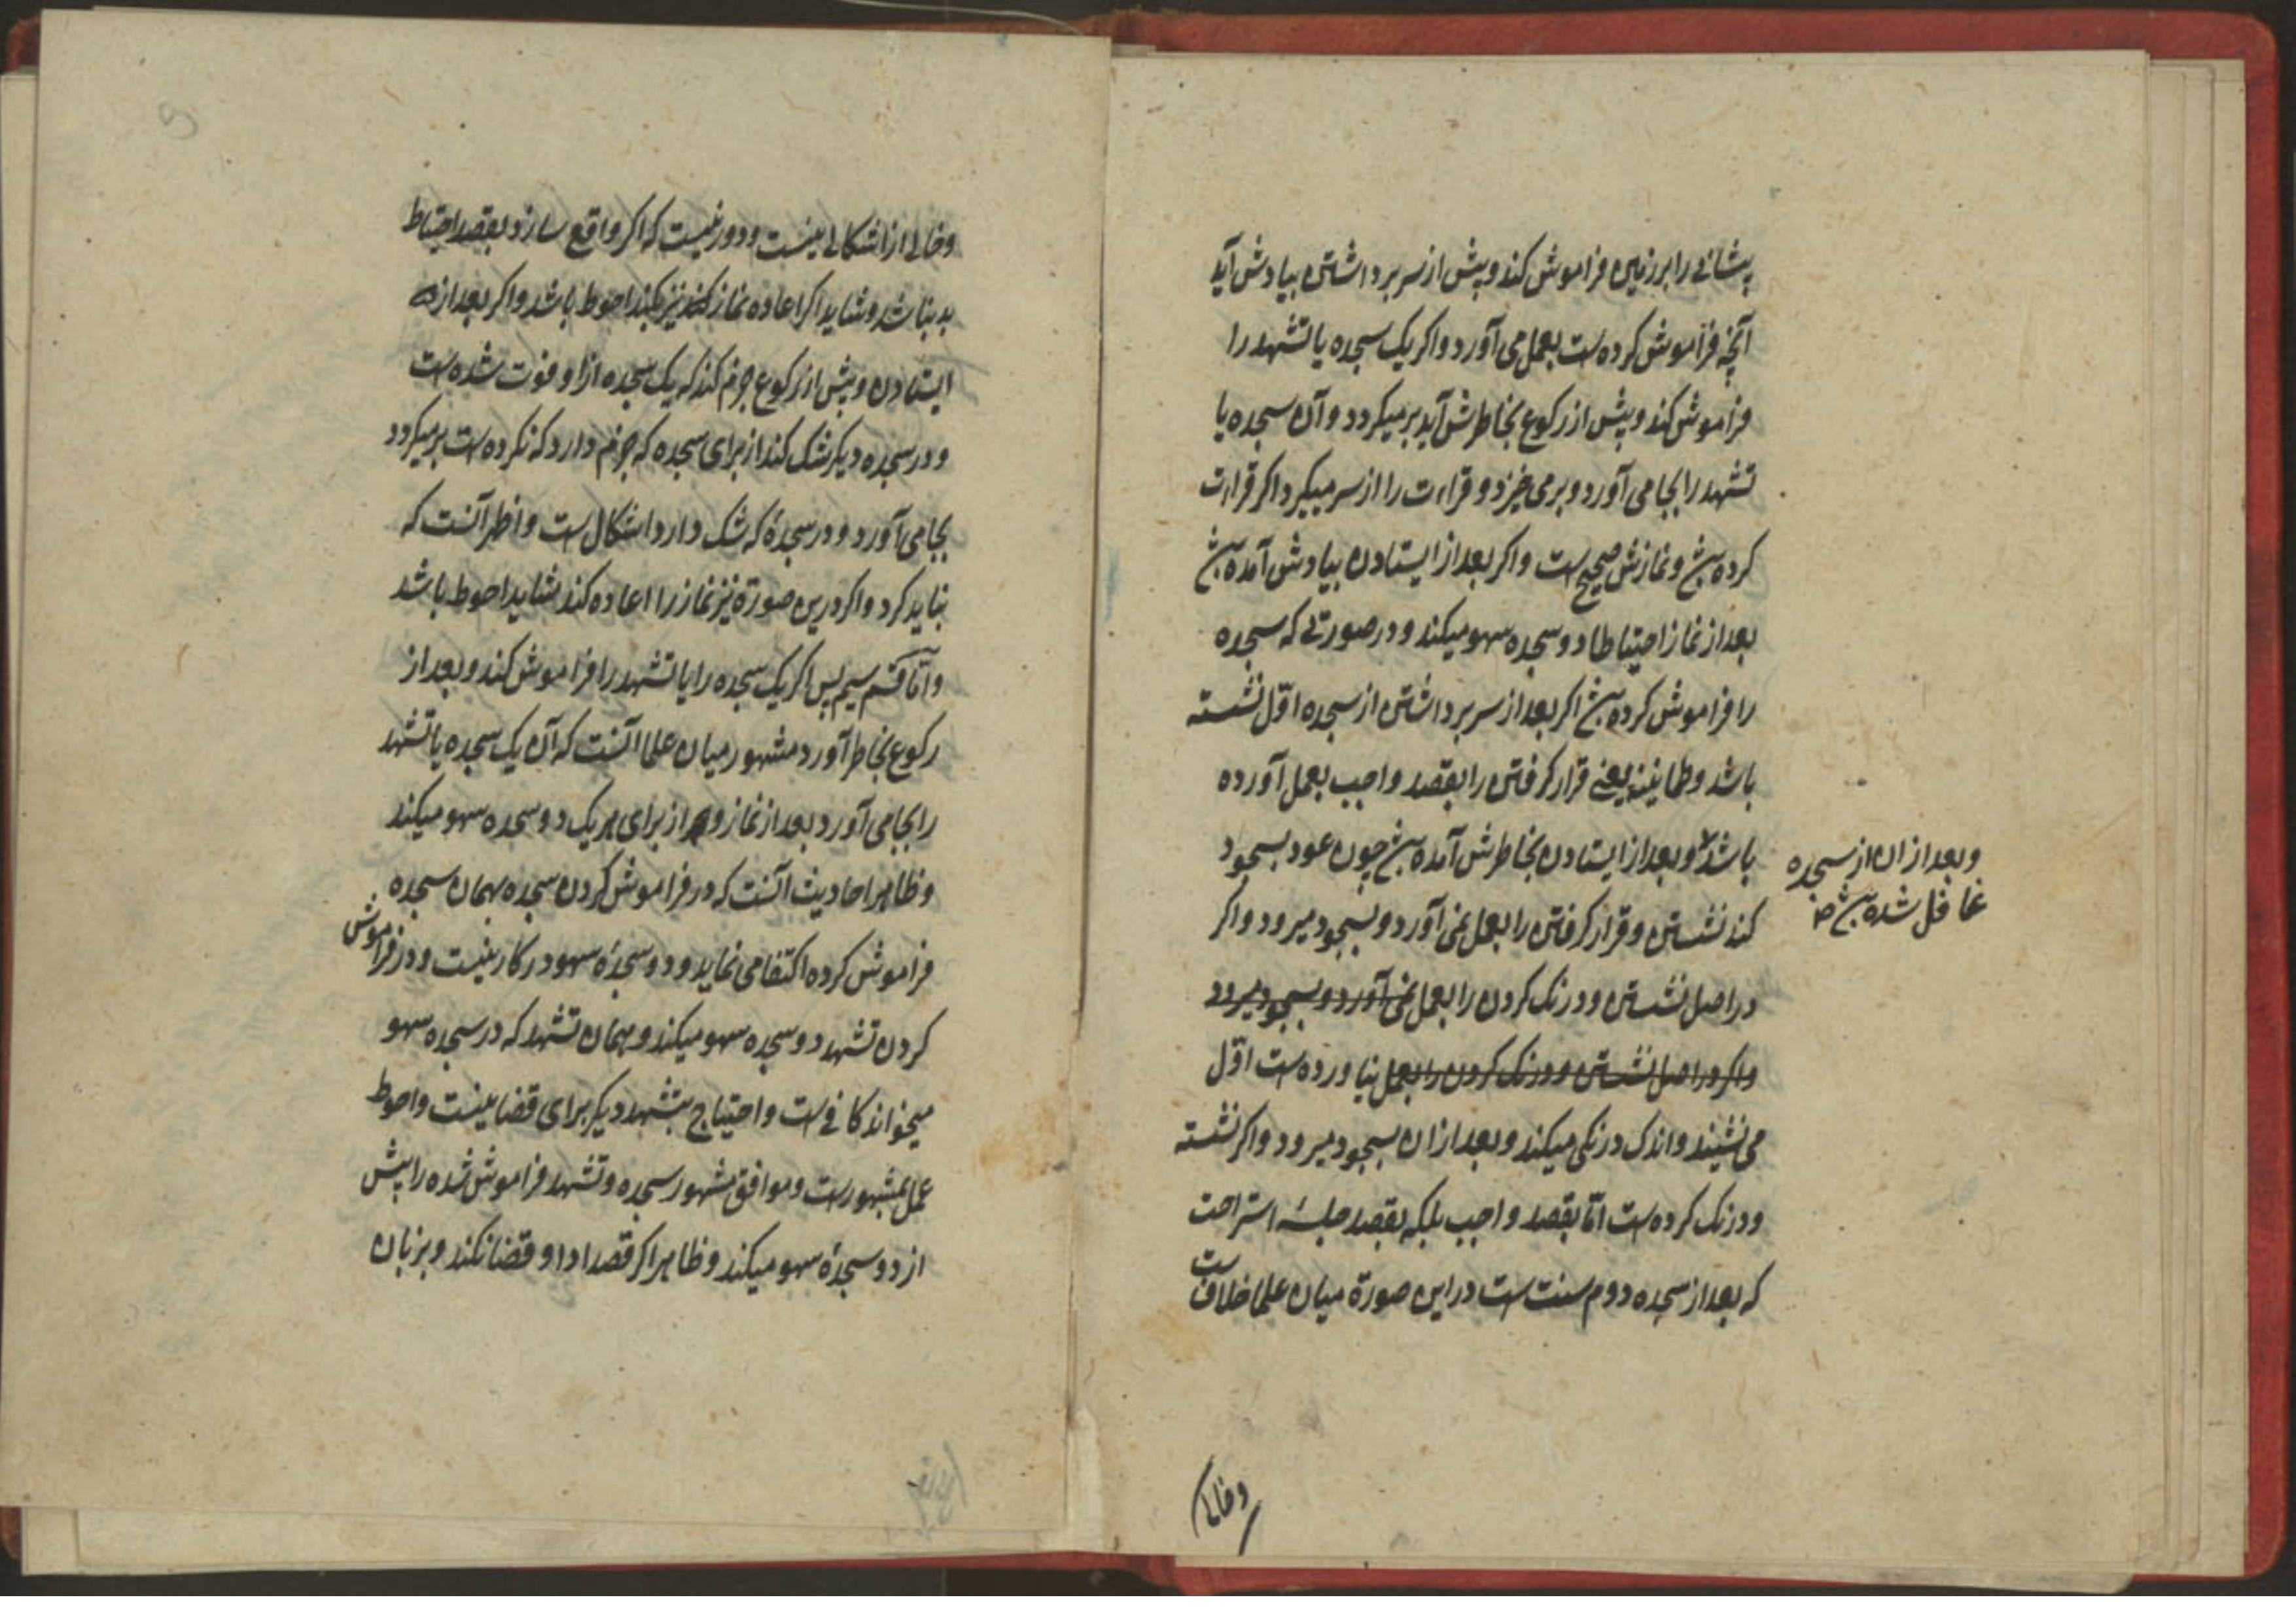 پیشانی را بر زمین فراموش کند و پیش از سر برداشتن بیادش آید
آنچه فراموش کرده است بعمل می آورد و اکر یک سجده یا تشهد را
فراموش کند و پیش از رکوع بخاطرش آید برمیکردد و آن سجده یا
تشهد را بجا می آورد و برمی خیزد و قراءت را از سر میکیرد اکر قراءت
کرده باشد و نمازش صحیح است و اکر بعد از ایستادن بیادش آمده باشد
بعد از نماز احتیاطا دو سجده سهو میکند و در صورتی که سجده
را فراموش کرده باشد اکر بعد از سر برداشتن از سجده اول نشسته
باشد و طمانینه یعنی قرار کرفتن را بقصد واجب بعمل آورده
باشد و بعد از ایستادن بخاطرش آمده باشد چون عود بسجود
وبعد از ان از سجده
غافل شده باشد صح
کند نشستن و قرار کرفتن را بعمل نمی آورد و بسجود میرود و اکر
در اصل نشستن و درنک کردن را بعمل نمی آورد و بسجود میرود
و اکر در اصل نشستن و درنک کردن را بعمل نیاورده است اول
می نشیند و اندک درنکی میکند و بعد از ان بسجود میرود و اکر نشسته
و درنک کرده است امّا بقصد واجب بلکه بقصد جلسهٔ استراحت
که بعد از سجده دوم سنت است در این صورة میان علما خلاف است
وخالی
وخالی از اشکالی نیست و دور نیست که اکر واقع سازد بقصد احتیاط
بد نباشد و شاید اکر اعاده نماز نیز بکند احوط باشد و اکر بعد از
ایستادن و پیش از رکوع جزم کند که یک سجده از او فوت شده است
و در سجده دیکر شک کند از برای سجده که جزم دارد که نکرده است برمیکردد
بجا می آورد و در سجدهٔ که شک دارد اشکال است و اظهر آنست که
نباید کرد و اکر درین صورة نیز نماز را اعاده کند شاید احوط باشد
و امّا قسم سیم پس اکر یک سجده را یا تشهد را فراموش کند و بعد از
رکوع بخاطر آورد مشهور میان علما آنست که آن یک سجده یا تشهد
را بجا می آورد بعد از نماز و از برای هر یک دو سجده سهو میکند
و ظاهر احادیث آنست که در فراموش کردن سجده بهمان سجده
فراموش کرده اکتفا می نماید و دو سجدهٔ سهو در کار نیست و در فراموش
کردن تشهد دو سجده سهو میکند و بهمان تشهد که در سجده سهو
میخواند کافی است و احتیاج بتشهد دیکر برای قضا نیست و احوط
عمل بمشهور است و موافق مشهور سجده و تشهد فراموش شده را پیش
از دو سجدهٔ سهو میکند و ظاهرا اکر قصد ادا و قضا نکند و بزبان